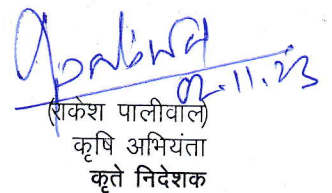 02.11.23
(राकेश पालीवाल)
कृषि अभियंता
कृते निदेशक